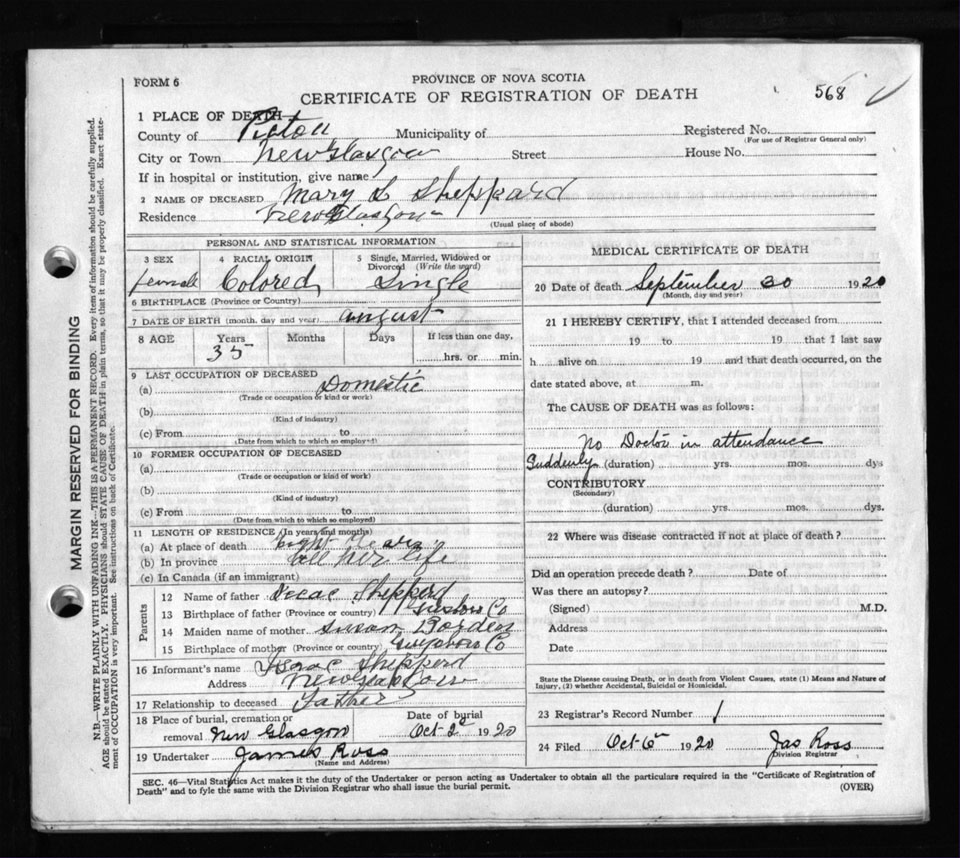 FORM 6
PROVINCE OF NOVA SCOTIA
CERTIFICATE OF REGISTRATION OF DEATH
568
1 PLACE OF DEATH
County of Pictou Municipality of Registered No.
(For use of Registrar General only)
City or Town New Glasgow Street House No.
If in hospital or institution, give name
2 NAME OF DECEASED Mary L Sheppard
Residence New Glasgow
(Usual place of abode)
PERSONAL AND STATISTICAL INFORMATION
3 SEX 4 RACIAL ORIGIN 5 Single, Married, Widowed or
Divorced (Write the word)
female Colored Single
6 BIRTHPLACE (Province or Country)
7 DATE OF BIRTH (month, day and year) august
8 AGE Years Months Days If less than one day,
35 hrs. or min.
9 LAST OCCUPATION OF DECEASED
(a) Domestic
(Trade or occupation or kind or work)
(b)
(Kind of industry)
(c) From to
(Date from which to which so employed)
10 FORMER OCCUPATION OF DECEASED
(a)
(Trade or occupation or kind of work)
(b)
(Kind of industry)
(c) From to
(Date from which to which so employed)
11 LENGTH OF RESIDENCE (In years and months)
(a) At place of death Eight Years
(b) In province all her life
(c) In Canada (if an immigrant)
Parents
12 Name of father Isaac Shepperd
13 Birthplace of father (Province or country) Co
14 Maiden name of mother Susan Borden
15 Birthplace of mother (Province or country) Co
16 Informant's name Isaac Shepperd
Address New Glasgow
17 Relationship to deceased Father
18 Place of burial, cremation or Date of burial
removal New Glasgow Oct 2 1920
19 Undertaker James Ross
(Name and Address)
MEDICAL CERTIFICATE OF DEATH
20 Date of death September 30 1920
(Month, day and year)
21 I HEREBY CERTIFY, that I attended deceased from
19 to 19 that I last saw
h alive on 19 and that death occurred, on the
date stated above, at m.
The CAUSE OF DEATH was as follows:
No Doctor in attendance
Suddenly (duration) yrs. mos. dys
CONTRIBUTORY
(Secondary)
(duration) yrs. mos. dys.
22 Where was disease contracted if not at place of death?
Did an operation precede death? Date of
Was there an autopsy?
(Signed) M.D.
Address
Date
State the Disease causing Death, or in death from Violent Causes, state (1) Means and Nature of
Injury, (2) whether Accidental, Suicidal or Homicidal.
23 Registrar's Record Number 1
24 Filed Oct 6 1920 Jas Ross
Division Registrar
SEC. 46—Vital Statistics Act makes it the duty of the Undertaker or person acting as Undertaker to obtain all the particulars required in the "Certificate of Registration of
Death" and to fyle the same with the Division Registrar who shall issue the burial permit. (OVER)
MARGIN RESERVED FOR BINDING
N.B.—WRITE PLAINLY WITH UNFADING INK—THIS IS A PERMANENT RECORD. Every item of information should be carefully supplied.
AGE should be stated EXACTLY. PHYSICIANS should STATE CAUSE OF DEATH in plain terms, so that it may be properly classified. Exact state-
ment of OCCUPATION is very important. See instructions on back of Certificate.